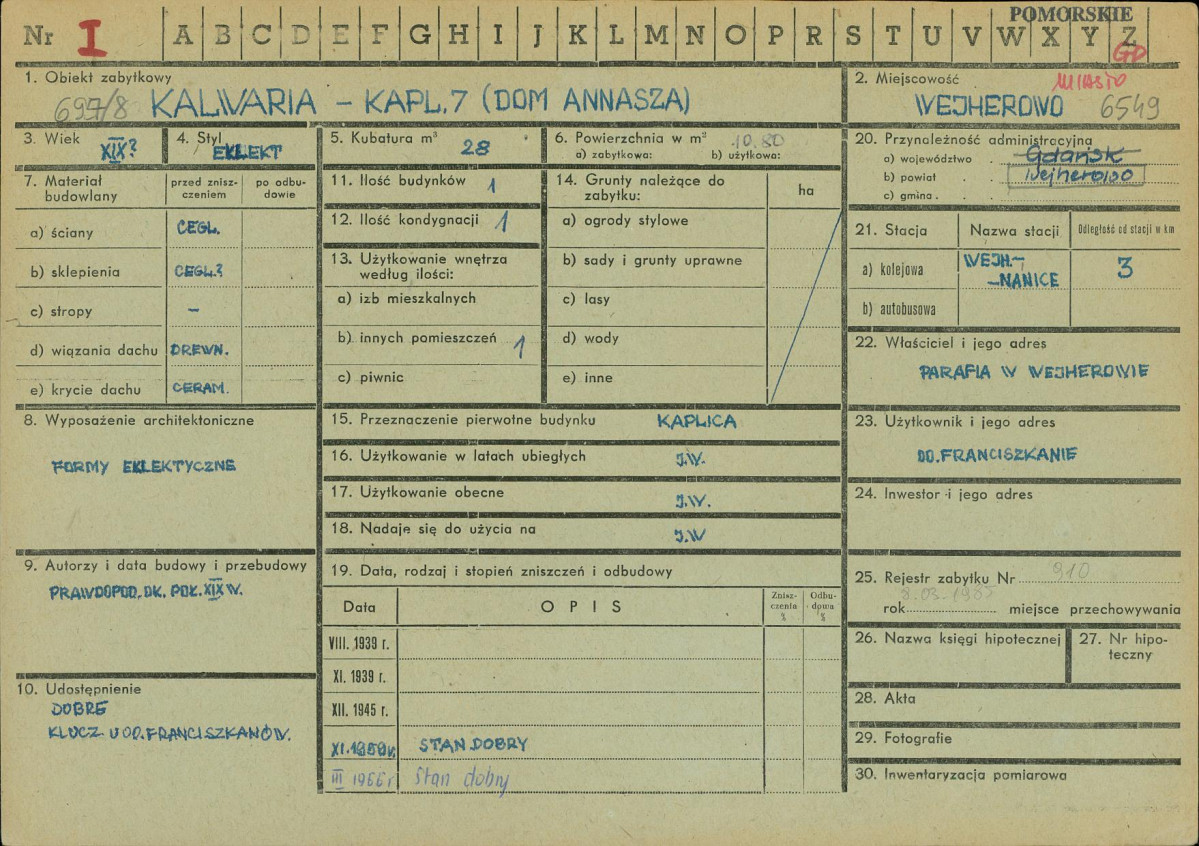 POMORSKIE
Nr I A B C D E F G H I J K L M N O P R S T U V W X Y Z
GD
1. Obiekt zabytkowy
697/8 KALWARIA - KAPL. 7 (DOM ANNASZA)
2. Miejscowość MIASTO
WEJHEROWO 6549
3. Wiek
XIX?
4. Styl
EKLEKT
5. Kubatura m³
28
6. Powierzchnia w m² 10.80
a) zabytkowa: b) użytkowa:
7. Materiał budowlany
przed znisz-
czeniem
po odbu-
dowie
a) ściany CEGŁ.
b) sklepienia CEGŁ.?
c) stropy –
d) wiązania dachu DREWN.
e) krycie dachu CERAM.
8. Wyposażenie architektoniczne
FORMY EKLEKTYCZNE
9. Autorzy i data budowy i przebudowy
PRAWDOPOD. OK. POŁ. XIX W.
10. Udostępnienie
DOBRE
KLUCZ U OO. FRANCISZKANÓW.
11. Ilość budynków 1
12. Ilość kondygnacji 1
13. Użytkowanie wnętrza
według ilości:
a) izb mieszkalnych
b) innych pomieszczeń 1
c) piwnic
14. Grunty należące do
zabytku:
ha
a) ogrody stylowe
b) sady i grunty uprawne
c) lasy
d) wody
e) inne
15. Przeznaczenie pierwotne budynku KAPLICA
16. Użytkowanie w latach ubiegłych J.W.
17. Użytkowanie obecne J.W.
18. Nadaje się do użycia na J.W
19. Data, rodzaj i stopień zniszczeń i odbudowy
Data
OPIS
Znisz-
czenia
%
Odbu-
dowa
%
VIII. 1939 r.
XI. 1939 r.
XII. 1945 r.
XI. 1959 r. STAN DOBRY
III 1966 r. Stan dobry
20. Przynależność administracyjna
a) województwo . Gdańsk
b) powiat . . Wejherowo
c) gmina . .
21. Stacja
Nazwa stacji
Odległość od stacji w km
a) kolejowa
WEJH.-
-NANICE
3
b) autobusowa
22. Właściciel i jego adres
PARAFIA W WEJHEROWIE
23. Użytkownik i jego adres
OO. FRANCISZKANIE
24. Inwestor i jego adres
25. Rejestr zabytku Nr 910
8.03.1985
rok miejsce przechowywania
26. Nazwa księgi hipotecznej
27. Nr hipo-
teczny
28. Akta
29. Fotografie
30. Inwentaryzacja pomiarowa